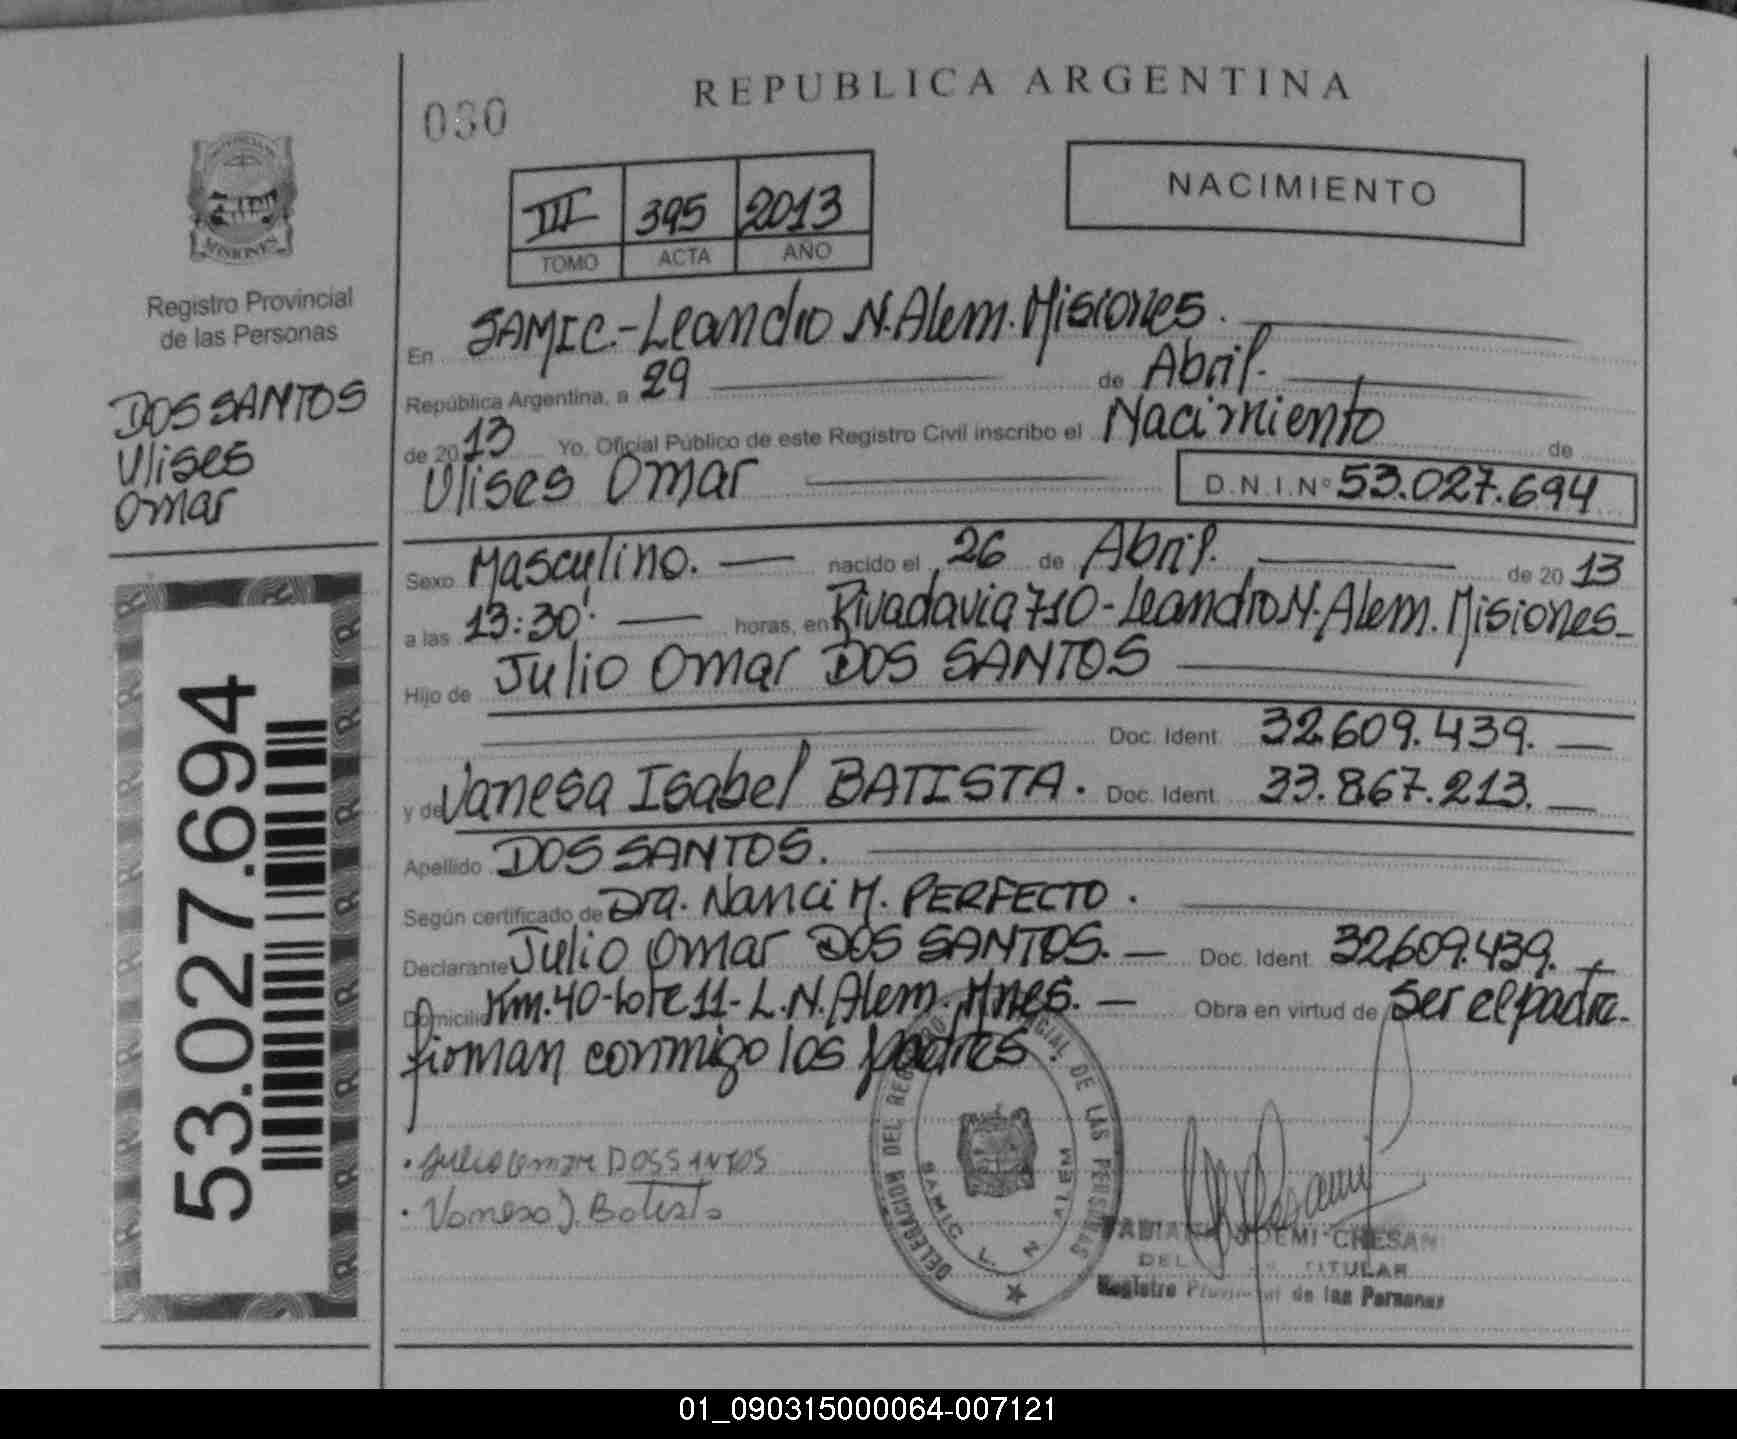 REPUBLICA ARGENTINA
030
NACIMIENTO
III 395 2013
TOMO ACTA AÑO
MISIONES
Registro Provincial
de las Personas
DOS SANTOS
Ulises
Omar
53.027.694
En SAMIC.-Leandro N. Alem. Misiones.
República Argentina, a 29 de Abril.
de 2013 Yo, Oficial Público de este Registro Civil inscribo el Nacimiento de
Ulises Omar D.N.I.Nº 53.027.694
Sexo Masculino. nacido el 26 de Abril. de 2013
a las 13:30'. horas, en Rivadavia 710-Leandro N. Alem. Misiones_
Hijo de Julio Omar DOS SANTOS
Doc. Ident. 32.609.439.
y de Vanesa Isabel BATISTA. Doc. Ident. 33.867.213.
Apellido DOS SANTOS.
Según certificado de Dra. Nanci M. PERFECTO.
Declarante Julio Omar DOS SANTOS. Doc. Ident. 32.609.439.
Domicilio Km.40-lote 11-L.N. Alem. Mnes. Obra en virtud de ser el padre.
firman conmigo los padres.
Julio Omar DOS SANTOS
Vanesa I. Batista
DELEGACION DEL REGISTRO PROVINCIAL DE LAS PERSONAS
SAMIC L. N. ALEM
NOEMI CHESANI
TITULAR
Registro Provincial de las Personas
01_090315000064-007121